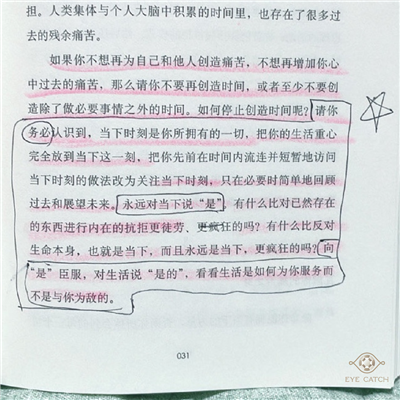 担。人类集体与个人大脑中积累的时间里，也存在了很多过
去的残余痛苦。
如果你不想再为自己和他人创造痛苦，不想再增加你心
中过去的痛苦，那么请你不要再创造时间，或者至少不要创
造除了做必要事情之外的时间。如何停止创造时间呢？请你
务必认识到，当下时刻是你所拥有的一切，把你的生活重心
完全放到当下这一刻，把你先前在时间内流连并短暂地访问
当下时刻的做法改为关注当下时刻，只在必要时简单地回顾
过去和展望未来。永远对当下说“是”。有什么比对已然存在
的东西进行内在的抗拒更徒劳、更疯狂的吗？有什么比反对
生命本身，也就是当下，而且永远是当下，更疯狂的呢？向
“是”臣服，对生活说“是的”，看看生活是如何为你服务而
不是与你为敌的。
031
EYE CATCH